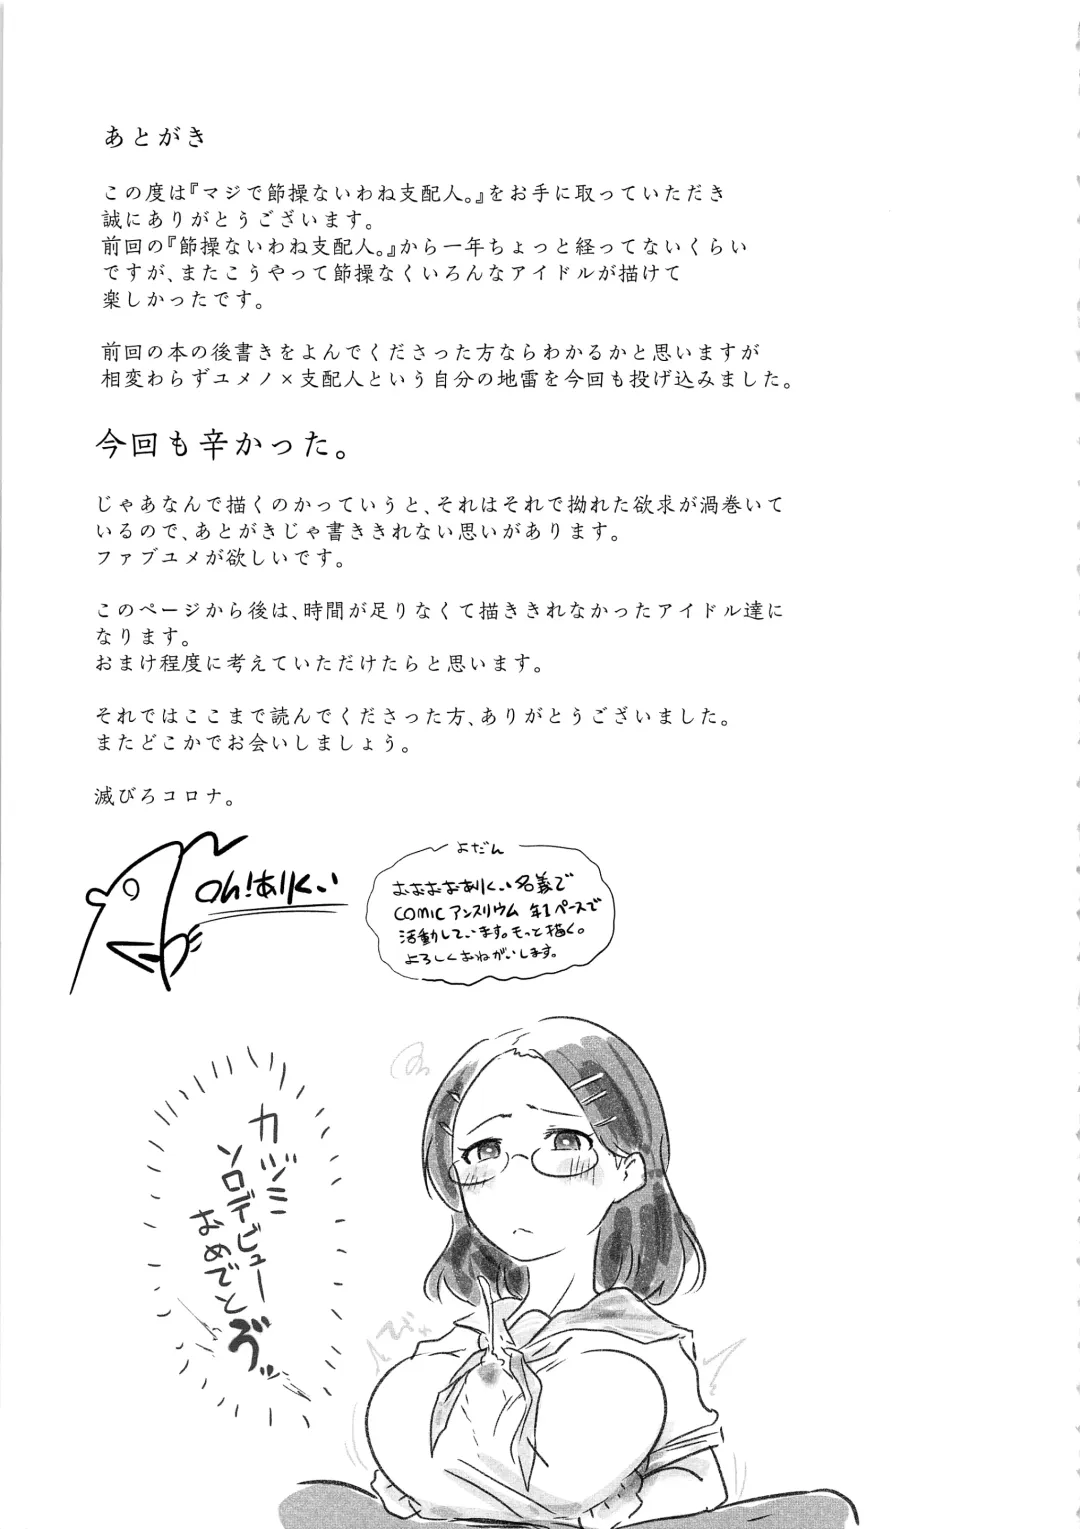 あとがき
この度は『マジで節操ないわね支配人。』をお手に取っていただき
誠にありがとうございます。
前回の『節操ないわね支配人。』から一年ちょっと経ってないくらい
ですが、またこうやって節操なくいろんなアイドルが描けて
楽しかったです。
前回の本の後書きをよんでくださった方ならわかるかと思いますが
相変わらずユメノ×支配人という自分の地雷を今回も投げ込みました。
今回も辛かった。
じゃあなんで描くのかっていうと、それはそれで拗れた欲求が渦巻いて
いるので、あとがきじゃ書ききれない思いがあります。
ファブユメが欲しいです。
このページから後は、時間が足りなくて描ききれなかったアイドル達に
なります。
おまけ程度に考えていただけたらと思います。
それではここまで読んでくださった方、ありがとうございました。
またどこかでお会いしましょう。
滅びろコロナ。
Oh!ありくい
よだん
おおおおありくい名義で
COMIC アンスリウム 年1ペースで
活動しています。もっと描く。
よろしくおねがいします。
カヅミ
ソロデビュー
おめでとぞッ
びゅ